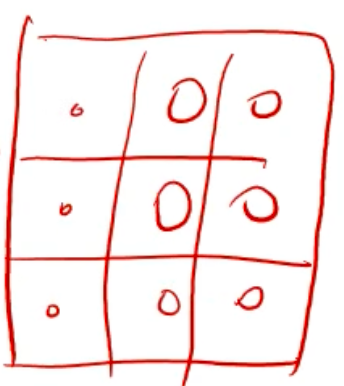 0 0 0
0 0 0
0 0 0